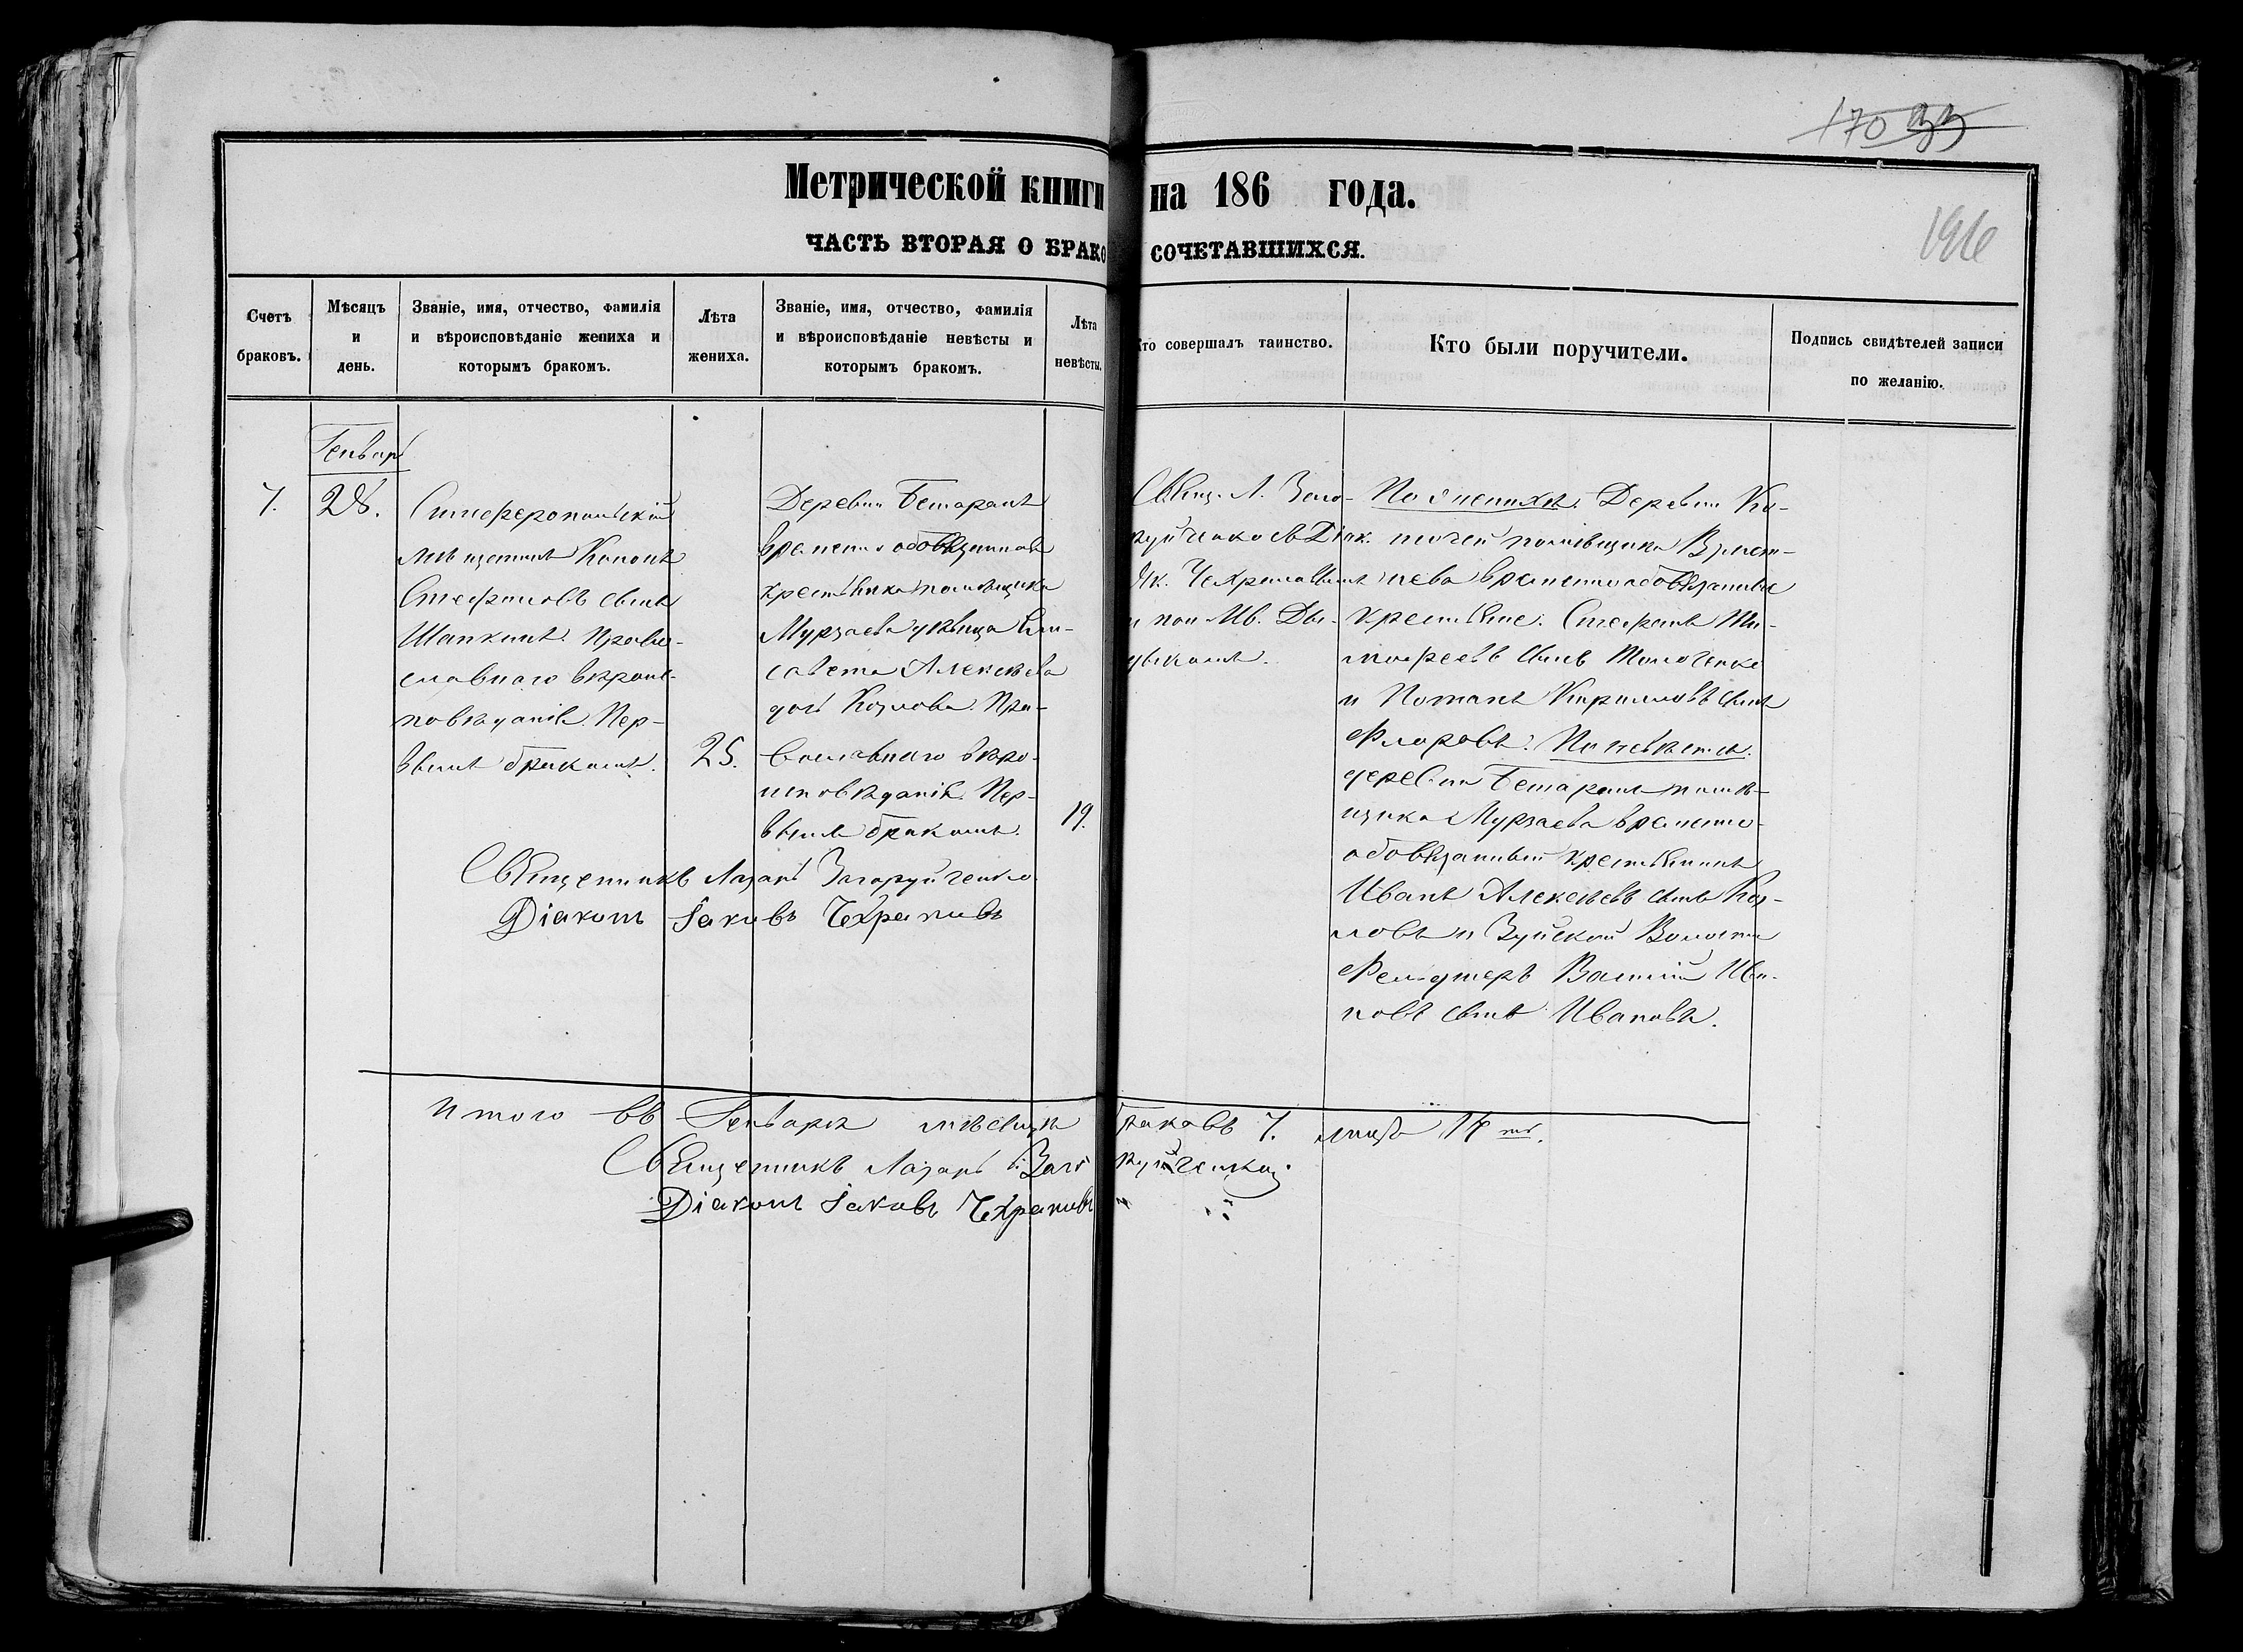 170
196
Метрической книги на 186 года.
ЧАСТЬ ВТОРАЯ О БРАКОСОЧЕТАВШИХСЯ.
Счетъ
браковъ.
Мѣсяцъ
и
день.
Званіе, имя, отчество, фамилія
и вѣроисповѣданіе жениха и
которымъ бракомъ.
Лѣта
жениха.
Званіе, имя, отчество, фамилія
и вѣроисповѣданіе невѣсты и
которымъ бракомъ.
Лѣта
невѣсты.
Кто совершалъ таинство.
Кто были поручители.
Подпись свидѣтелей записи
по желанію.
Генварь
7.
28.
Симферопольскій
мѣщанинъ Кононъ
Стефановъ сынъ
Шапкинъ. Право-
славнаго вѣроис-
повѣданія. Пер-
вымъ бракомъ.
25.
Деревни Бешарань
временно обовязаннаго
крестьянина помѣщика
Мурзаева дѣвица Ели-
савета Алексѣева
дочь Козлова. Пра-
вославнаго вѣро-
исповѣданія. Пер-
вымъ бракомъ.
19.
Свящ. Л. Заго-
руйченко съ Діак.
Як. Чехрановымъ
и пон. Ив. Ды-
По женихѣ: Деревни
помѣщика
временнообовязанные
крестьяне: Стефанъ Ти-
мофеевъ сынъ Толоченко
и Потапъ Кирилловъ сынъ
Флоровъ. По невѣстѣ:
деревни Бешарань помѣ-
щика Мурзаева временно-
обовязанный крестьянинъ
Иванъ Алексѣевъ сынъ Коз-
ловъ и Зуйской Волости
Фельдшеръ Василій Ива-
новъ сынъ Ивановъ.
Священникъ Лазарь Загоруйченко
Діаконъ Іаковъ Чехрановъ
Итого въ Генварѣ мѣсяцѣ браковъ 7. лицъ 14ть.
Священникъ Лазарь Загоруйченко
Діаконъ Іаковъ Чехрановъ